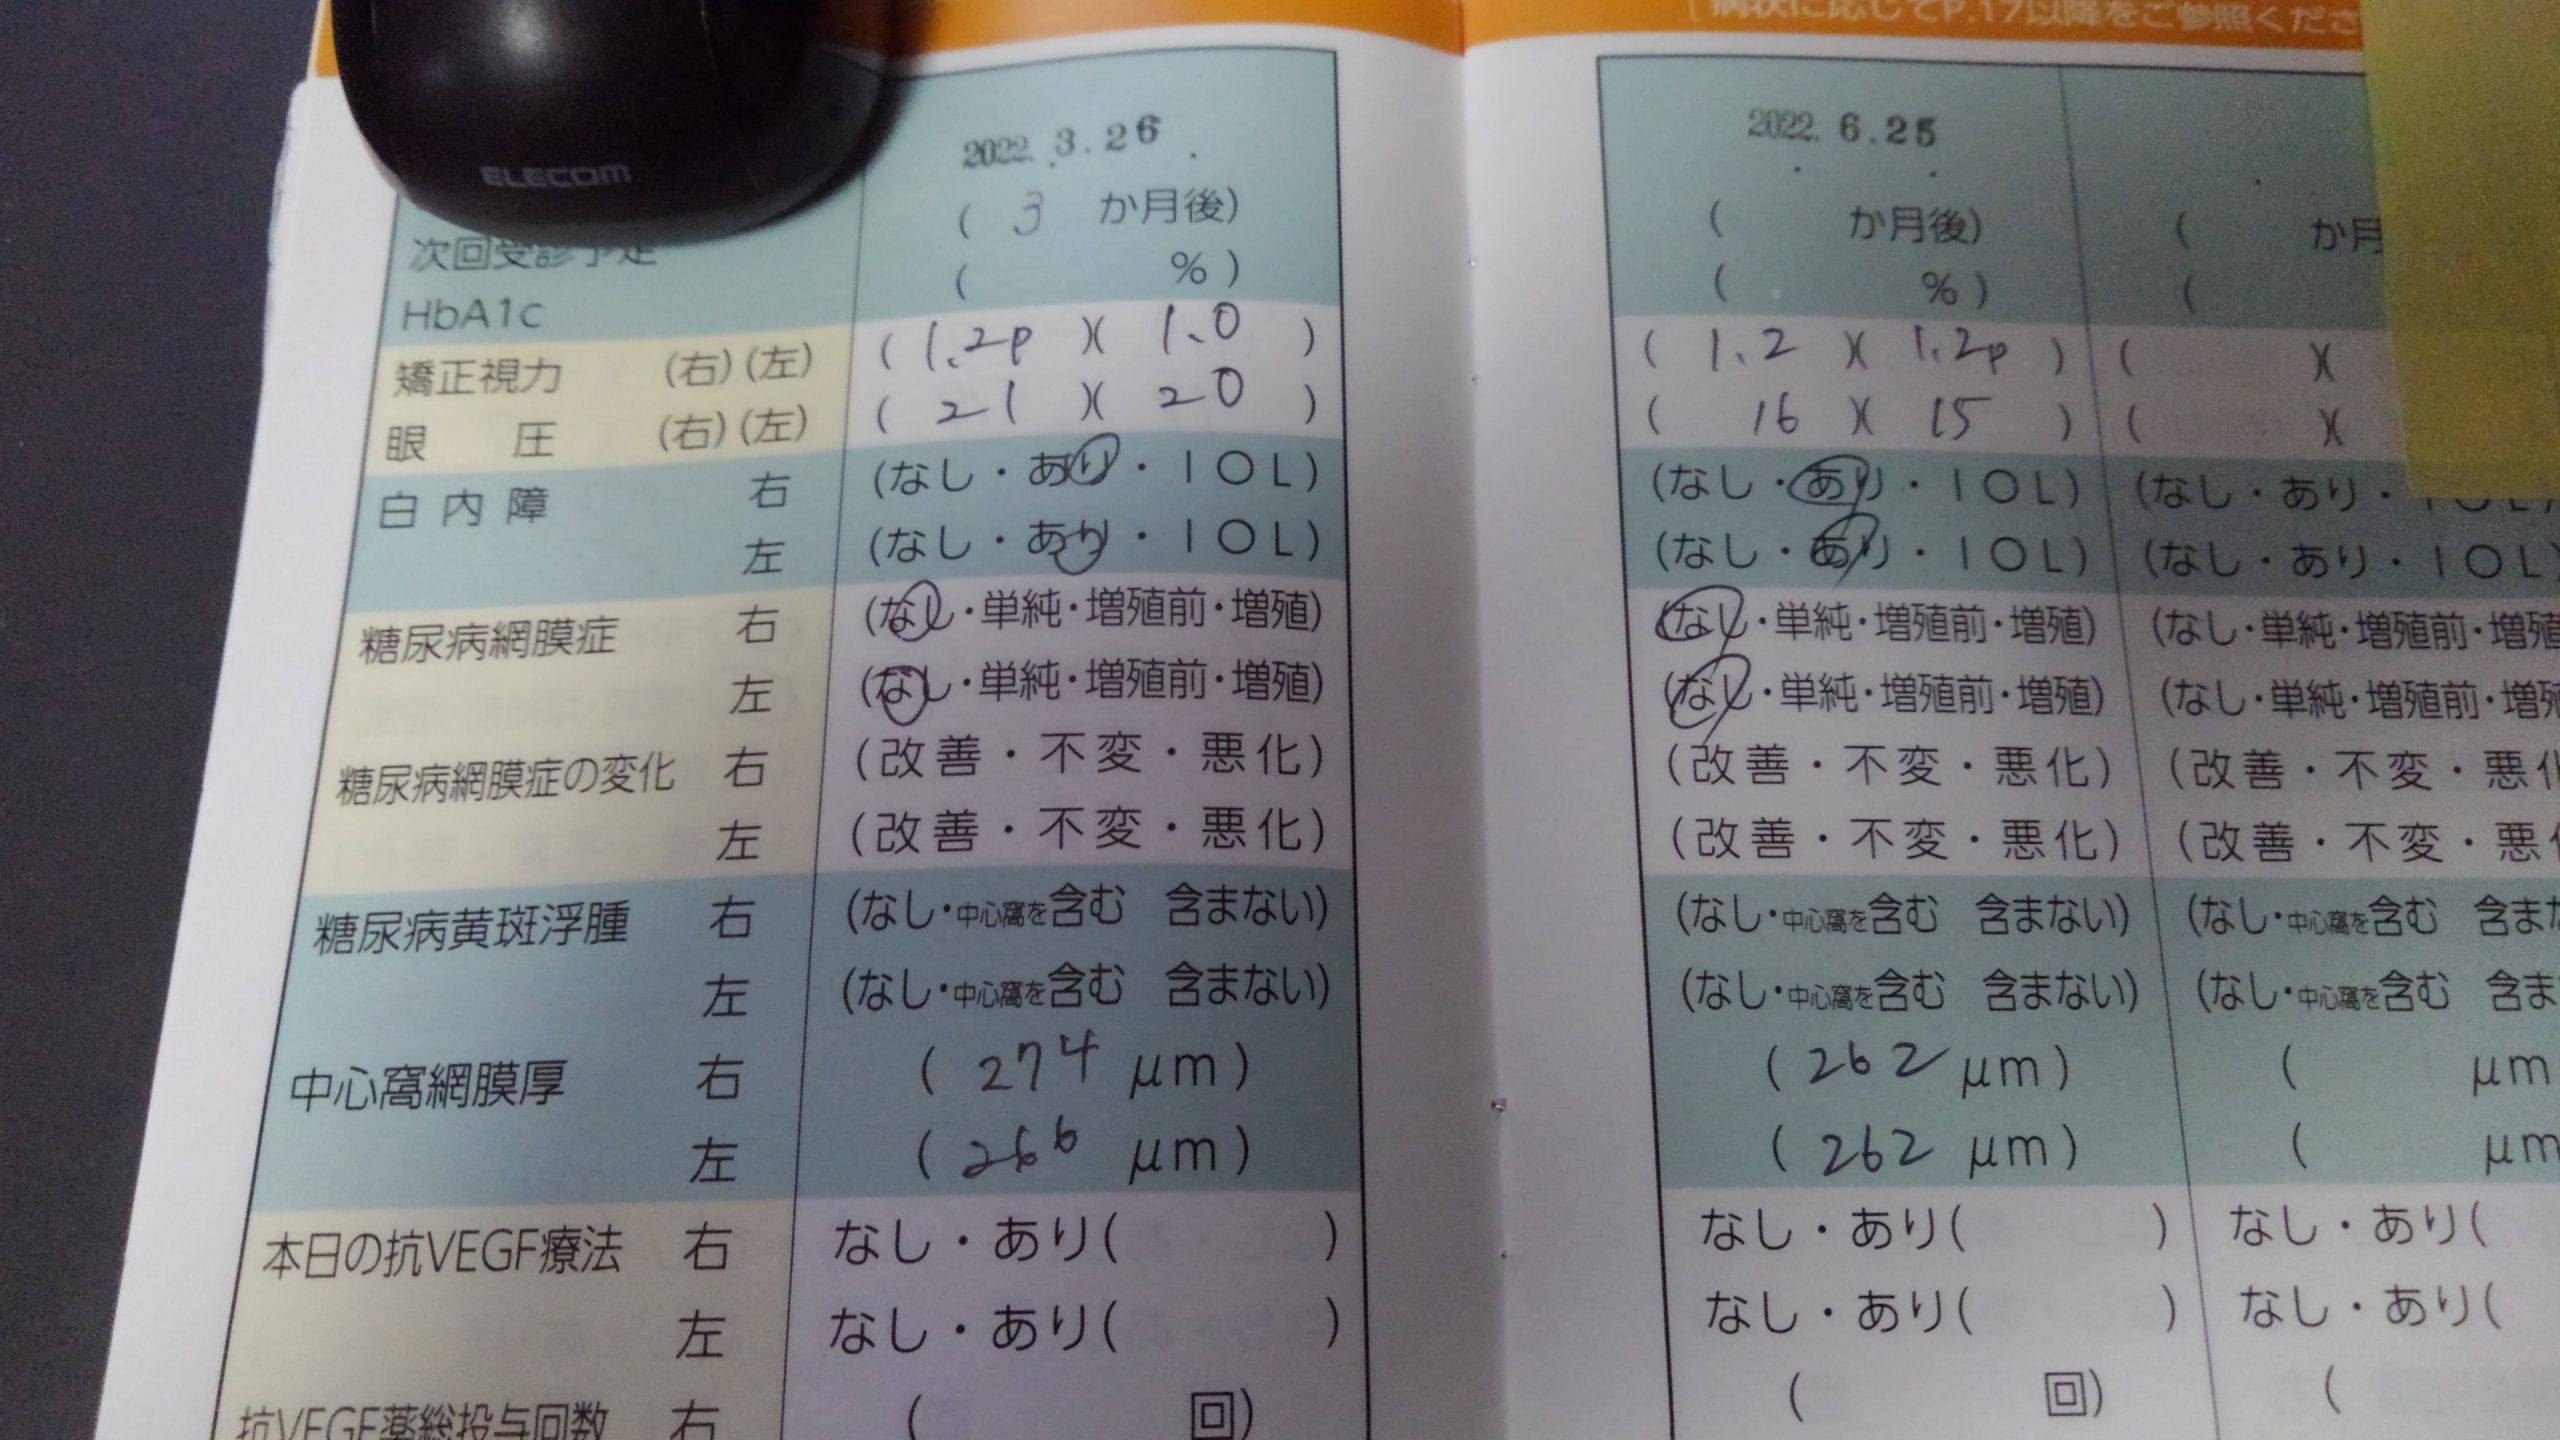 病状に応じてP.17以降をご参照くださ
ELECOM
2022. 3. 26 2022. 6. 25
次回受診予定 ( 3 か月後) ( か月後) ( か月
HbA1c ( %) ( %) (
矯正視力 (右)(左) ( 1.2p )( 1.0 ) ( 1.2 )( 1.2p ) ( )(
眼 圧 (右)(左) ( 21 )( 20 ) ( 16 )( 15 ) ( )(
白内障 右 (なし・あり・IOL) (なし・あり・IOL) (なし・あり・
左 (なし・あり・IOL) (なし・あり・IOL) (なし・あり・IOL)
糖尿病網膜症 右 (なし・単純・増殖前・増殖) (なし・単純・増殖前・増殖) (なし・単純・増殖前・増殖
左 (なし・単純・増殖前・増殖) (なし・単純・増殖前・増殖) (なし・単純・増殖前・増殖
糖尿病網膜症の変化 右 (改善・不変・悪化) (改善・不変・悪化) (改善・不変・悪化
左 (改善・不変・悪化) (改善・不変・悪化) (改善・不変・悪化
糖尿病黄斑浮腫 右 (なし・中心窩を含む 含まない) (なし・中心窩を含む 含まない) (なし・中心窩を含む 含まな
左 (なし・中心窩を含む 含まない) (なし・中心窩を含む 含まない) (なし・中心窩を含む 含ま
中心窩網膜厚 右 ( 274 μm) ( 262 μm) ( μm
左 ( 266 μm) ( 262 μm) ( μm
本日の抗VEGF療法 右 なし・あり( ) なし・あり( ) なし・あり(
左 なし・あり( ) なし・あり( ) なし・あり(
抗VEGF薬総投与回数 右 ( 回) ( 回) (